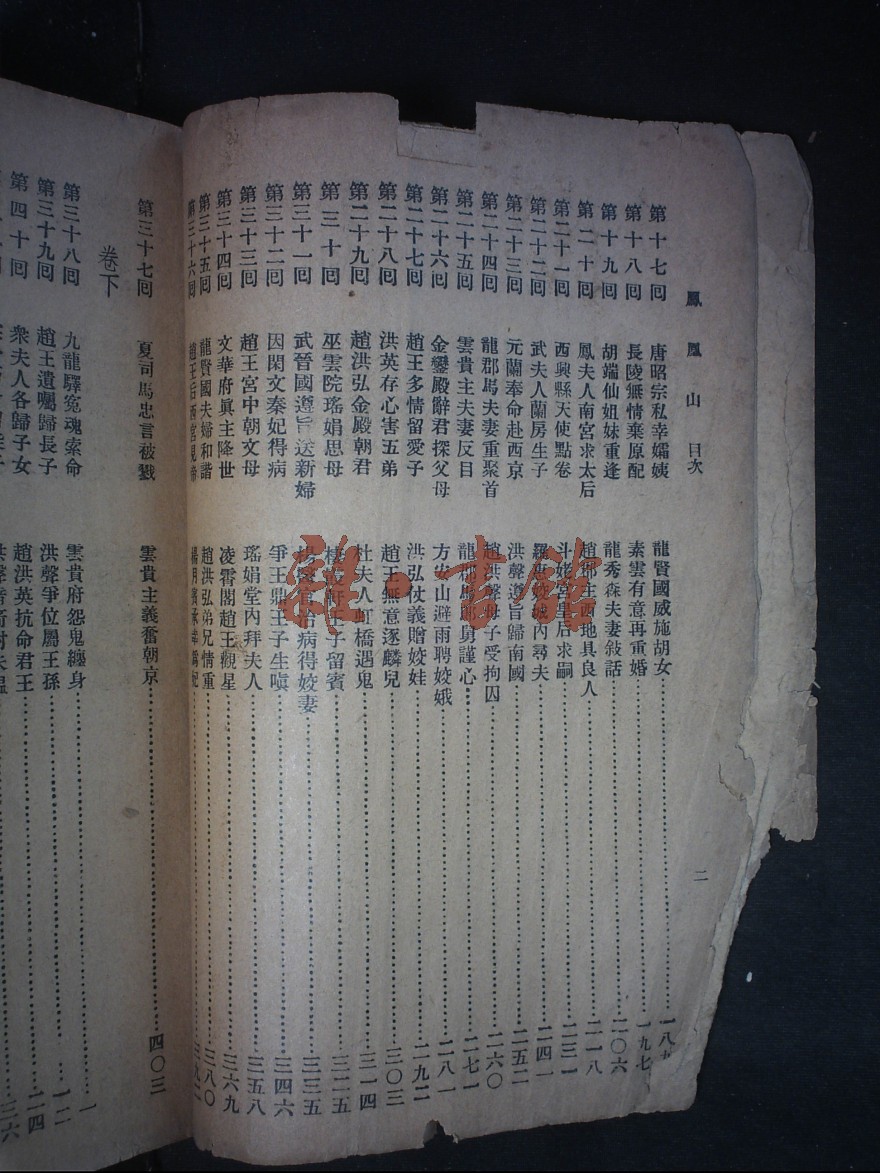 鳳凰山 目次 二
第十七囘 唐昭宗私幸孀姨 龍賢國威施胡女 一八九
第十八囘 長陵無情棄原配 素雲有意再重婚 一九七
第十九囘 胡端仙姐妹重逢 龍秀森夫妻敍話 二〇六
第二十囘 鳳夫人南宮求太后 趙郡主西地具良人 二一八
第二十一囘 西興縣天使點卷 斗姥宮皇后求嗣 二三一
第二十二囘 武夫人蘭房生子 羅惠姣城內尋夫 二四一
第二十三囘 元蘭奉命赴西京 洪聲遵旨歸南國 二五二
第二十四囘 龍郡馬夫妻重聚首 趙洪聲母子受拘囚 二六〇
第二十五囘 雲貴主夫妻反目 龍郡馬郎舅謹心 二七一
第二十六囘 金鑾殿辭君探父母 方安山避雨聘姣娥 二八一
第二十七囘 趙王多情留愛子 洪弘仗義贈姣娃 二九二
第二十八囘 洪英存心害五弟 趙王無意逐麟兒 三〇三
第二十九囘 趙洪弘金殿朝君 杜夫人虹橋遇鬼 三一四
第三十囘 巫雲院瑤娟思母 棲霞軒王子留賓 三二五
第三十一囘 武晉國遵旨送新婦 楊醫官治病得姣妻 三三五
第三十二囘 因閑文秦妃得病 爭王鼎王子生嗔 三四六
第三十三囘 趙王宮中朝文母 瑤娟堂內拜夫人 三五八
第三十四囘 文華府眞主降世 凌霄閣趙王觀星 三六九
第三十五囘 龍賢國夫婦和諧 趙洪弘弟兄情重 三八〇
第三十六囘 趙王后西宮見帝
第三十七囘 夏司馬忠言被戮 雲貴主義奮朝京 四〇三
卷下
第三十八囘 九龍驛冤魂索命 雲貴府怨鬼纏身 一
第三十九囘 趙王遺囑歸長子 洪聲爭位屬王孫 一二
第四十囘 衆夫人各歸子女 趙洪英抗命君王 二四
三六